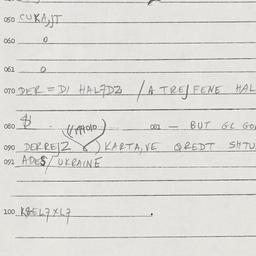 050 CUKA,JT
060 0
061 0
070 DER = DI HAL7DZ / A TREJ FENE HAL
080
081 — BUT GL GO
090 DERREJZ ) KARTA,VE QREDT SHTU
091 ADES/UKRAINE
100 KBEL7XL7 .